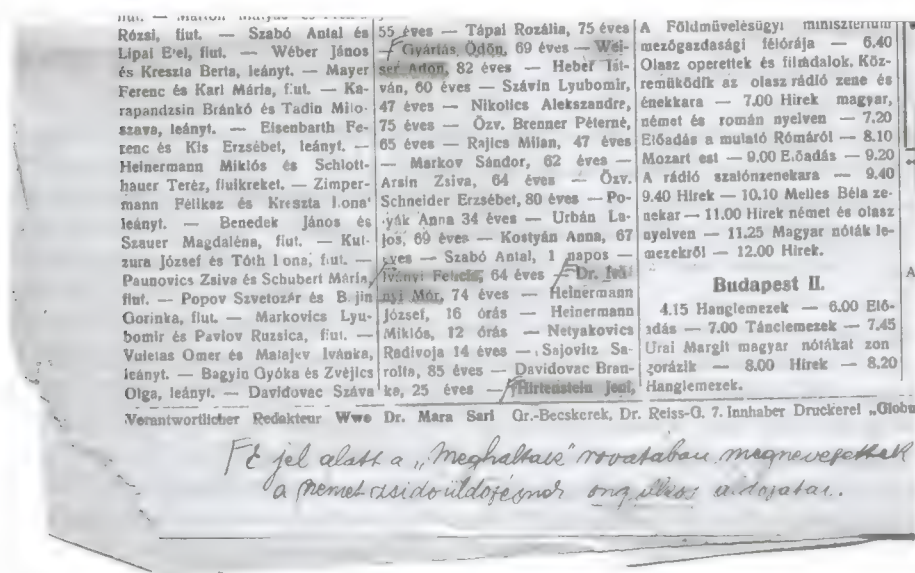 Rózsi, fiut. — Szabó Antal és
Lipai Etel, fiut. — Wéber János
és Kreszta Berta, leányt. — Mayer
Ferenc és Karl Mária, fiut. — Ka-
rapandzsin Bránkó és Tadin Milo-
szava, leányt. — Eisenbarth Fe-
renc és Kis Erzsébet, leányt. —
Heinermann Miklós és Schlott-
hauer Teréz, fiuikreket. — Zimper-
mann Féliksz és Kreszta Ilona
leányt. — Benedek János és
Szauer Magdaléna, fiut. — Kul-
zura József és Tóth Ilona, fiut. —
Paunovics Zsiva és Schubert Mária,
fiut. — Popov Szvetozár és
Gorinka, fiut. — Markovics Lyu-
bomir és Pavlov Ruzsica, fiut. —
Vuletas Omer és Malajev Ivánka,
leányt. — Bagyin Gyóka és Zvéjics
Olga, leányt. — Davidovac Száva
55 éves — Tápai Rozália, 75 éves
— Gyárfás Ödön, 69 éves — Wei-
ser Adon, 82 éves — Heber Ist-
ván, 60 éves — Szávin Lyubomir,
47 éves — Nikolics Alekszandre,
75 éves — Özv. Brenner Péterné,
65 éves — Rajics Milan, 47 éves
— Markov Sándor, 62 éves —
Arsin Zsiva, 64 éves — Özv.
Schneider Erzsébet, 80 éves — Po-
lyák Anna 34 éves — Urbán La-
jos, 69 éves — Kostyán Anna, 67
éves — Szabó Antal, 1 napos —
Iványi Felicia, 64 éves — Dr. Ivá-
nyi Mór, 74 éves — Heinermann
József, 16 órás — Heinermann
Miklós, 12 órás — Netyakovics
Radivoja 14 éves — Sajovitz Sa-
rolta, 85 éves — Davidovac Bran-
ka, 25 éves — Hirtenstein Jenő,
A Földművelésügyi minisztérium
mezőgazdasági félórája — 6.40
Olasz operettek és filmdalok. Köz-
remüködik az olasz rádió zene és
énekkara — 7.00 Hirek magyar,
német és román nyelven — 7.20
Előadás a mulató Rómáról — 8.10
Mozart est — 9.00 Előadás — 9.20
A rádió szalónzenekara — 9.40
9.40 Hirek — 10.10 Melles Béla ze-
nekar — 11.00 Hirek német és olasz
nyelven — 11.25 Magyar nóták le-
mezekről — 12.00 Hirek.
Budapest II.
4.15 Hanglemezek — 6.00 Elő-
adás — 7.00 Tánclemezek — 7.45
Urai Margit magyar nótákat zon
gorázik — 8.00 Hirek — 8.20
Hanglemezek.
Verantwortlicher Redakteur Wwe Dr. Mara Sari Gr.-Becskerek, Dr. Reiss-G. 7. Innhaber Druckerei „Globu
jel alatt a „Meghaltak" rovatában megnevezettek
a német